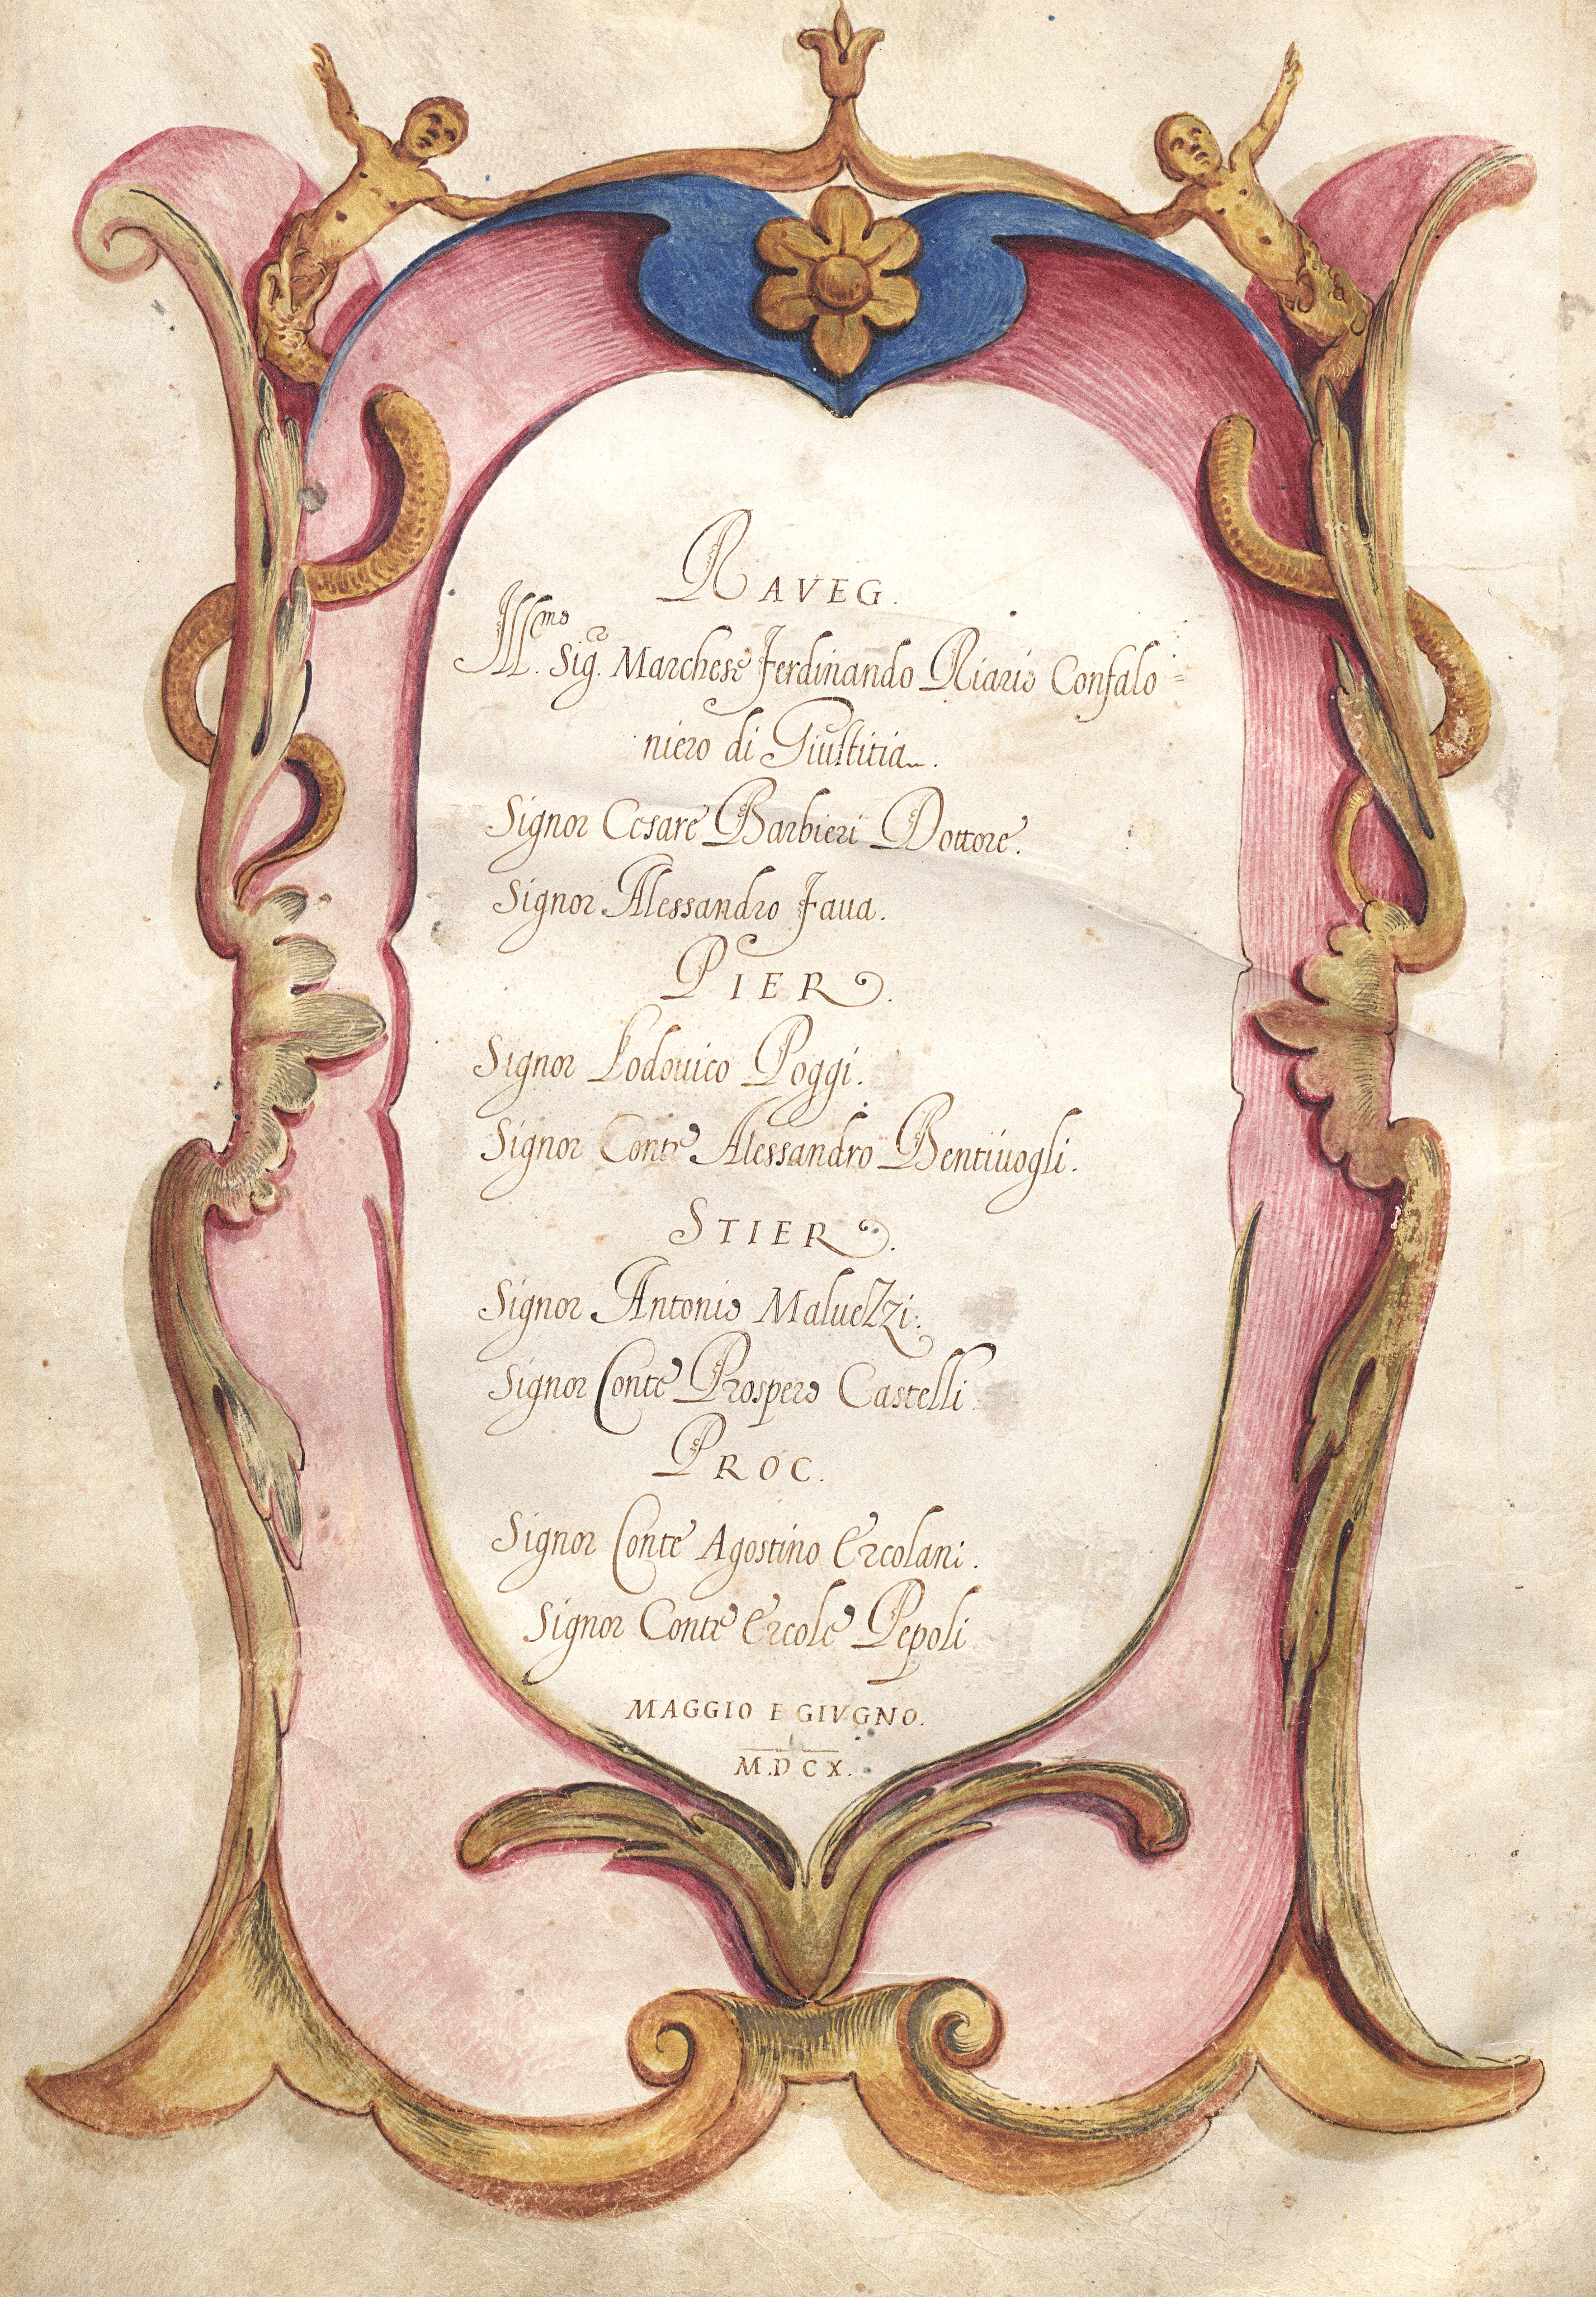 RAVEG.
Ill.mo Sig.r Marchese Ferdinando Riario Confalo=
niero di Giustitia.
Signor Cesare Barbieri Dottore.
Signor Alessandro Faua.
PIER.
Signor Lodouico Poggi.
Signor Conte Alessandro Bentiuogli.
STIER.
Signor Antonio Maluezzi.
Signor Conte Prospero Castelli.
PROC.
Signor Conte Agostino Ercolani.
Signor Conte Ercole Pepoli
MAGGIO E GIVGNO.
M.DCX.